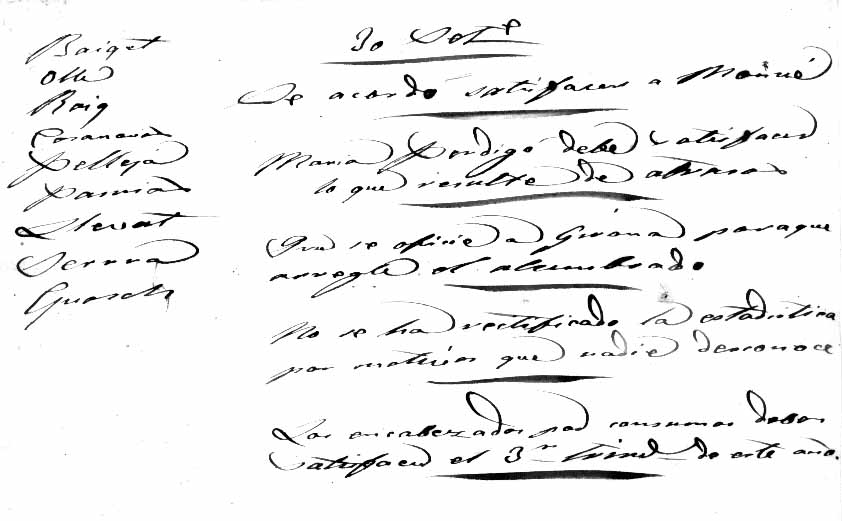 Baiget
Olle
Roig
Casanovas
Pellejá
Pamias
Llevat
Serra
Guasch
30 Set.e
Se acordó satisfacer a Monné
Maria Pordigó debe satisfacer
lo que resulte de atrasos
Que se oficie a Girona para que
arregle el alumbrado
No se ha rectificado la estadistica
por motivos que nadie desconoce
Los encabezados por consumos deben
satisfacer el 3er trim.e de este año.